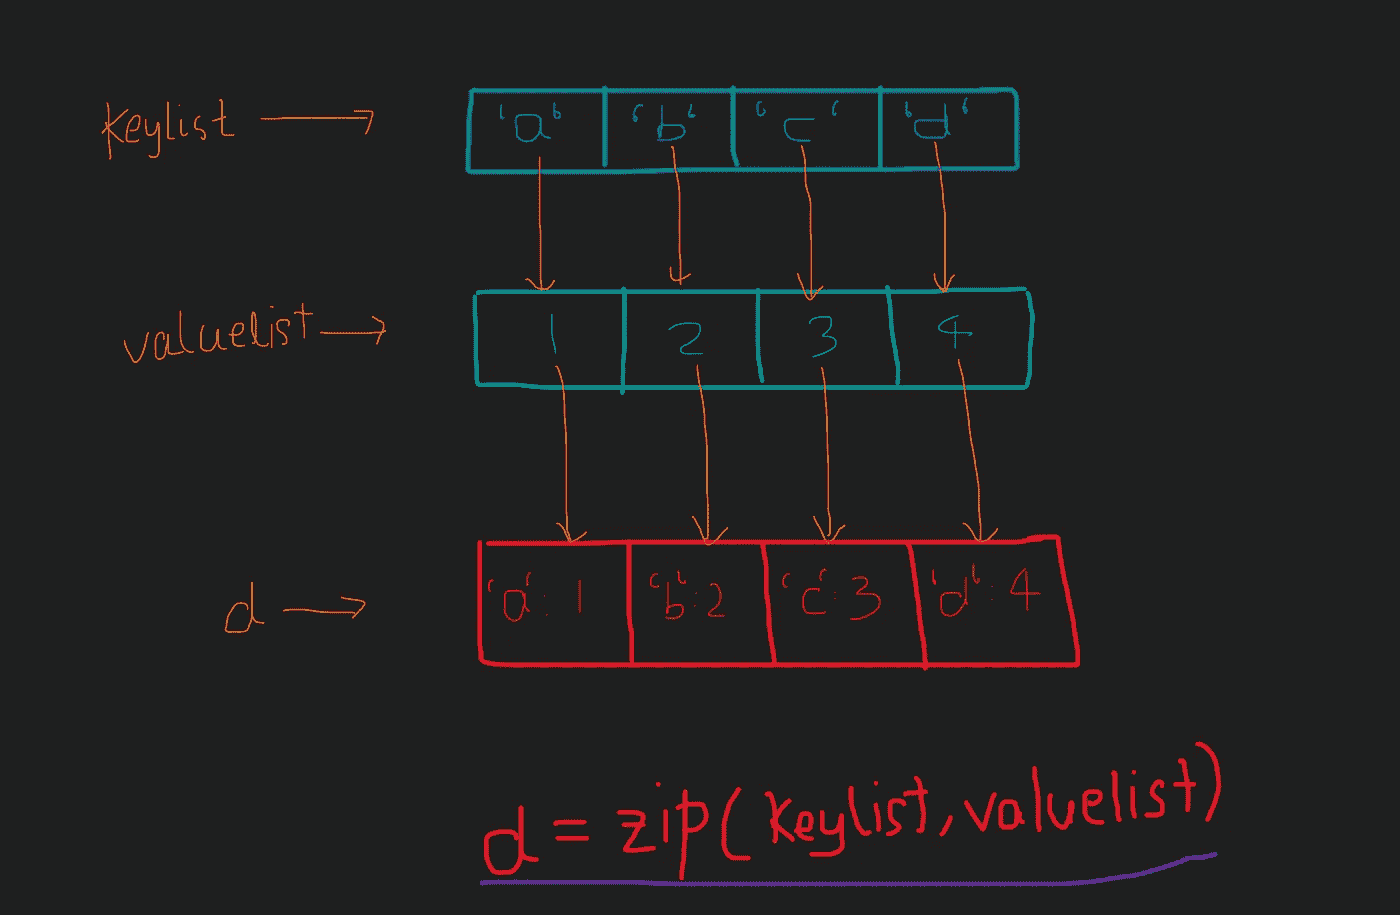 keylist → 'a' 'b' 'c' 'd'
valuelist → 1 2 3 4
d → 'a': 1 'b':2 'c':3 'd':4
d = zip(keylist, valuelist)